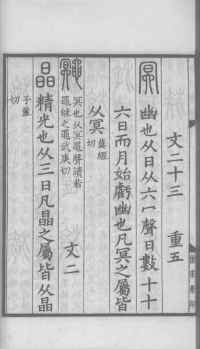 文二十三　重五
冥 幽也从日从六冖聲日數十十
六日而月始虧幽也凡冥之屬皆
从冥 莫經切
鼆 冥也从冥黽聲讀若
黽蛙之黽武庚切
文二
晶 精光也从三日凡晶之屬皆从晶
子盈切